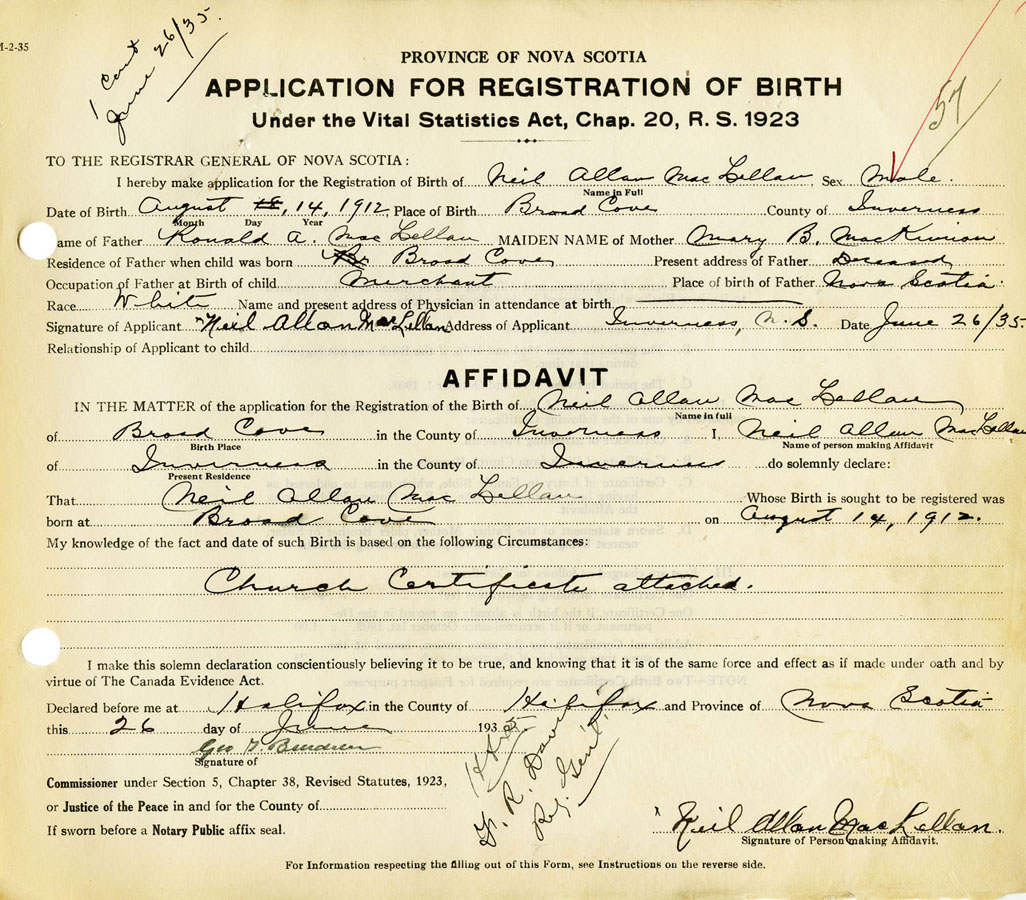 M-2-35
1 Cert
June 26/35.
57
PROVINCE OF NOVA SCOTIA
APPLICATION FOR REGISTRATION OF BIRTH
Under the Vital Statistics Act, Chap. 20, R. S. 1923
TO THE REGISTRAR GENERAL OF NOVA SCOTIA:
I hereby make application for the Registration of Birth of Neil Allan MacLellan Sex Male.
Name in Full
Date of Birth August 14, 1912 Place of Birth Broad Cove County of Inverness
Month Day Year
ame of Father Ronald A. MacLellan MAIDEN NAME of Mother Mary B. MacKinnon
Residence of Father when child was born Broad Cove Present address of Father Deceased
Occupation of Father at Birth of child Merchant Place of birth of Father Nova Scotia.
Race White Name and present address of Physician in attendance at birth
Signature of Applicant "Neil Allan MacLellan Address of Applicant Inverness, N. S. Date June 26/35.
Relationship of Applicant to child
AFFIDAVIT
IN THE MATTER of the application for the Registration of the Birth of Neil Allan MacLellan
Name in full
of Broad Cove in the County of Inverness I, Neil Allan MacLellan
Birth Place Name of person making Affidavit
of Inverness in the County of Inverness do solemnly declare:
Present Residence
That Neil Allan MacLellan Whose Birth is sought to be registered was
born at Broad Cove on August 14, 1912.
My knowledge of the fact and date of such Birth is based on the following Circumstances:
Church Certificate attached.
I make this solemn declaration conscientiously believing it to be true, and knowing that it is of the same force and effect as if made under oath and by
virtue of The Canada Evidence Act.
Declared before me at Halifax in the County of Halifax and Province of Nova Scotia
this 26 day of June 1935.
Geo
Signature of
Commissioner under Section 5, Chapter 38, Revised Statutes, 1923,
or Justice of the Peace in and for the County of
If sworn before a Notary Public affix seal.
R. Davis
Reg. Gen'l.
"Neil Allan MacLellan.
Signature of Person making Affidavit.
For Information respecting the filling out of this Form, see Instructions on the reverse side.